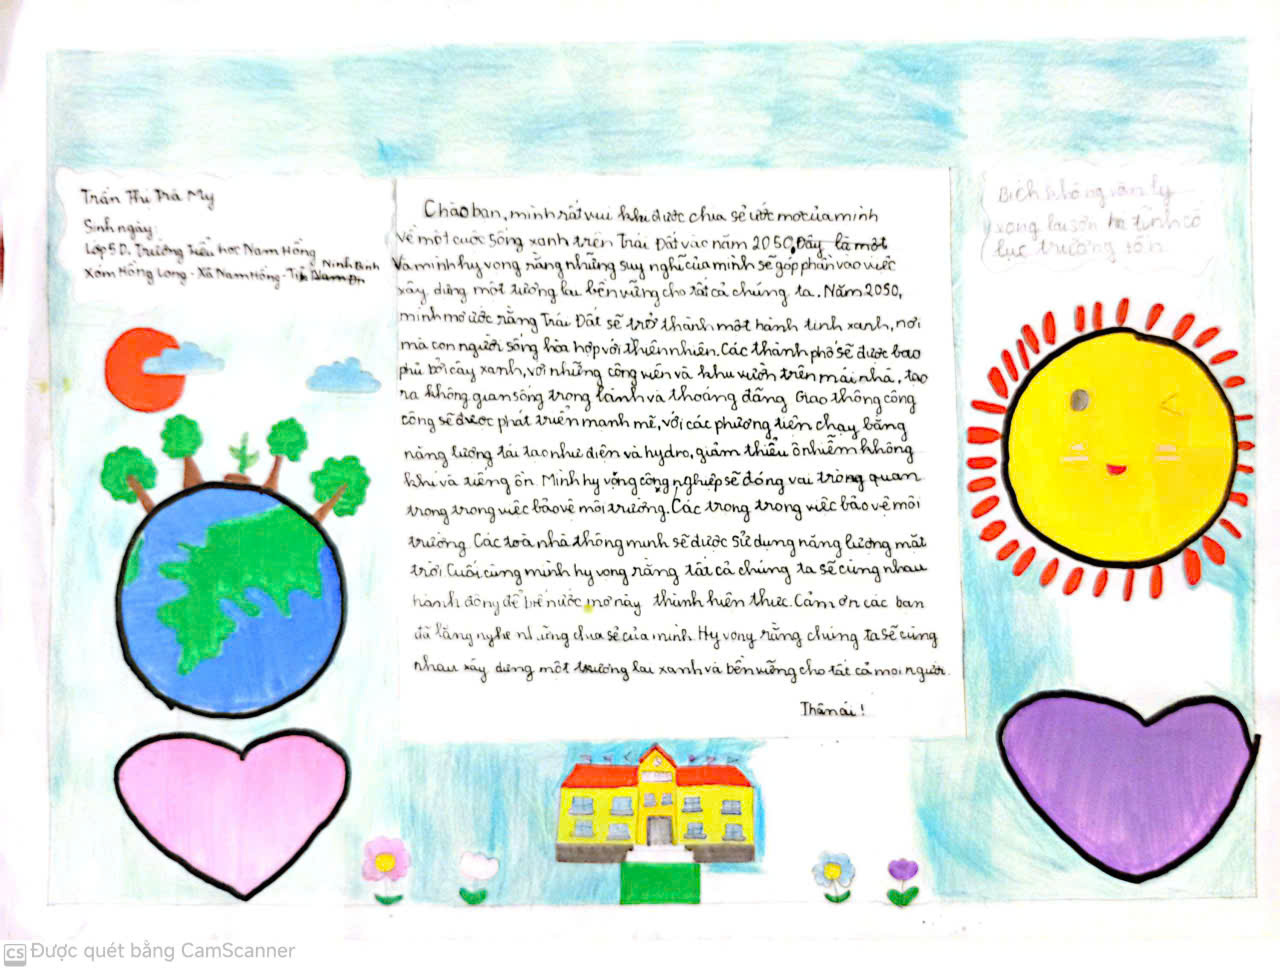 Trần Thị Trà My
Sinh ngày:
Lớp 5D. Trường Tiểu học Nam Hồng
Xóm Hồng Long - Xã Nam Hồng - Ninh Bình
Chào bạn, mình rất vui khi được chia sẻ ước mơ của mình
về một cuộc sống xanh trên Trái Đất vào năm 2050. Đây là một
Và mình hy vọng rằng những suy nghĩ của mình sẽ góp phần vào việc
xây dựng một tương lai bền vững cho tất cả chúng ta. Năm 2050,
mình mơ ước rằng Trái Đất sẽ trở thành một hành tinh xanh, nơi
mà con người sống hòa hợp với thiên nhiên. Các thành phố sẽ được bao
phủ bởi cây xanh, với những công viên và khu vườn trên mái nhà, tạo
ra không gian sống trong lành và thoáng đãng Giao thông công
cộng sẽ được phát triển mạnh mẽ, với các phương tiện chạy bằng
năng lượng tái tạo như điện và hydro, giảm thiểu ô nhiễm không
khí và tiếng ồn. Mình hy vọng công nghiệp sẽ đóng vai trò quan
trọng trong việc bảo vệ môi trường. Các trong trong việc bảo vệ môi
trường. Các toà nhà thông minh sẽ được sử dụng năng lượng mặt
trời. Cuối cùng mình hy vọng rằng tất cả chúng ta sẽ cùng nhau
hành động để biến ước mơ này thành hiện thực. Cảm ơn các bạn
đã lắng nghe những chia sẻ của mình. Hy vọng rằng chúng ta sẽ cùng
nhau xây dựng một tương lai xanh và bền vững cho tất cả mọi người.
Thân ái!
Bích không vạn lý
xong lai sơn hạ tình cô
lục trường tồn
CS Được quét bằng CamScanner